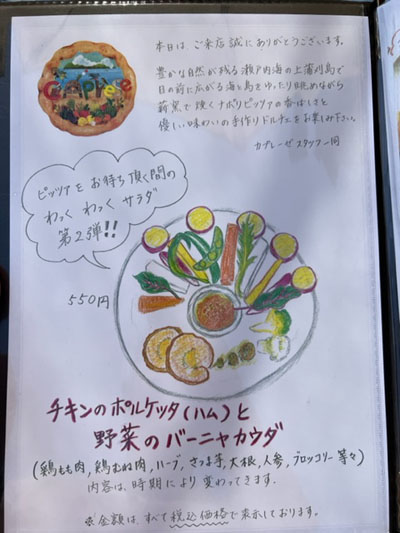 Caprese
本日は、ご来店誠にありがとうございます。
豊かな自然が残る瀬戸内海の上蒲刈島で
目の前に広がる海と島をゆったり眺めながら
薪窯で焼くナポリピッツァの香ばしさと
優しい味わいの手作りドルチェをお楽しみ下さい。
カプレーゼスタッフ一同
ピッツァをお待ち頂く間の
わっく わっく サラダ
第2弾!!
550円
チキンのポルケッタ(ハム)と
野菜のバーニャカウダ
(鶏もも肉,鶏むね肉,ハーブ,さつま芋,大根,人参,ブロッコリー等々)
内容は、時期により変わってきます.
※金額は、すべて税込価格で表示しております.